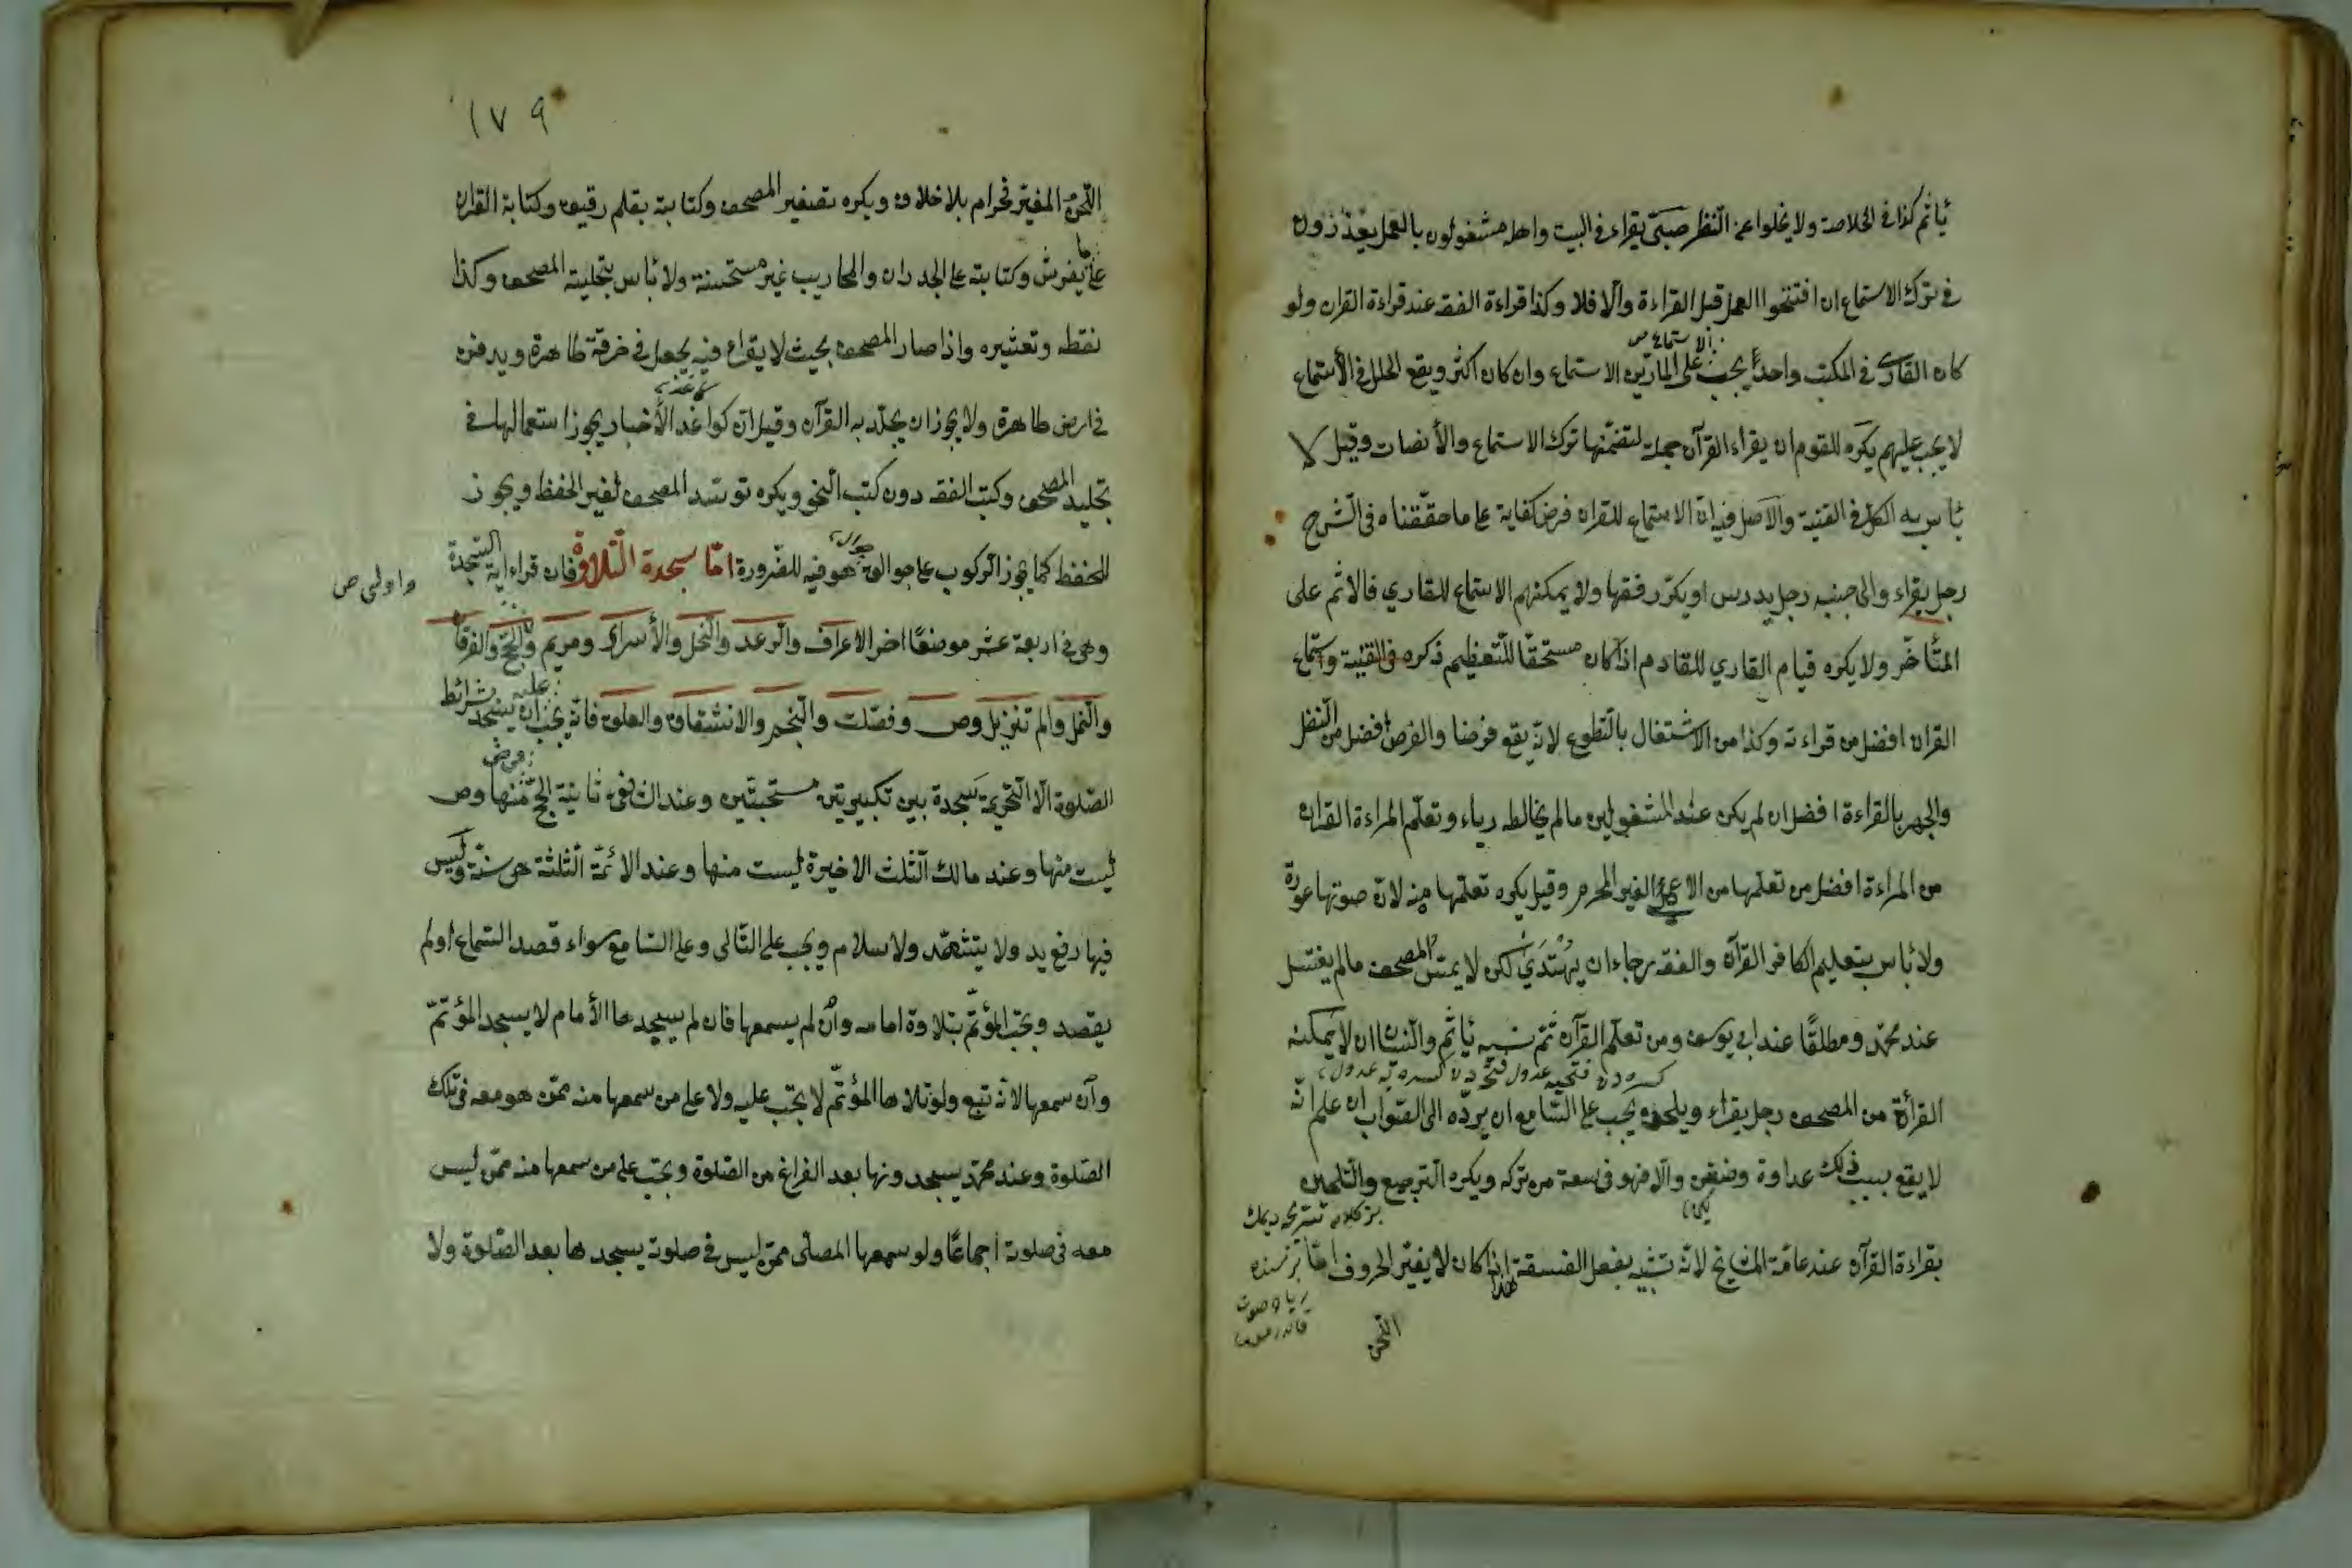 يأثم كذا في الخلاصة ولا يخلوا عن النظر صبيّ يقراء في البيت واهله مشغولون بالعمل يعذرون
في ترك الاستماع ان افتتحوا العمل قبل القراءة والّا فلا وكذا قراءة الفقه عند قراءة القران ولو
كان القارئ في المكتب واحدًا يجب على المارّين الاستماع وان كان اكثر ويقع الخلل في الأستماع
لا يجب عليهم يكره للقوم ان يقراء القرآن جملة لتضمّنها ترك الاستماع والأنصات وقيل لا
بأس به الكل في القنية والاصل فيه ان الاستماع للقران فرض كفاية على ما حقّقناه في الشّرح
رجل يقراء والى جنبه رجل يدرس او يكرّر فقها ولا يمكنهم الاستماع للقاري فالاثم على
المتأخّر ولا يكره قيام القاري للقادم اذا كان مستحقّا للتّعظيم ذكره في القنية واستماع
القران افضل من قراءته وكذا من الاشتغال بالتّطوع لانّه يقع فرضا والفرض افضل من النّفل
والجهر بالقراءة افضل ان لم يكن عند المشغولين ما لم يخالطه رياء وتعلّم المراءة القران
من المراءة افضل من تعلّمها من الاعمى الغير المحرم وقيل يكره تعلّمها منه لانّ صوتها عورة
ولا بأس بتعليم الكافر القرآن والفقه رجاء ان يهتدي لكن لا يمسّ المصحف ما لم يغتسل
عند محمّد ومطلقًا عند ابي يوسف ومن تعلّم القرآن ثمّ نسيه يأثم والنسيان ان لا يمكنه
القرأة من المصحف رجل يقراء ويلحن يجب على السّامع ان يردّه الى الصّواب ان علم انّه
لا يقع بسبب ذلك عداوة وضغن والّا فهو في سعة من تركه ويكره التّرجيع والتّلحين
بقراءة القرآن عند عامّة المشايخ لانّه تشبّه بفعل الفسقة هذا اذا كان لا يغيّر الحروف امّا
اللّحن
١٧٩
اللّحن المغيّر فحرام بلا خلاف ويكره تصغير المصحف وكتابته بقلم رقيق وكتابة القران
على ما يفرش وكتابته على الجدران والمحاريب غير مستحسنة ولا بأس بتحلية المصحف وكذا
نقطه وتعشيره واذا صار المصحف بحيث لا يقراء فيه يجعل في خرقة طاهرة ويدفن
في ارض طاهرة ولا يجوز ان يجلّد به القرآن وقيل انّ كواغد الأخبار يجوز استعمالها في
تجليد المصحف وكتب الفقه دون كتب النحو ويكره توسّد المصحف لغير الحفظ ويجوز
للحفظ كما يجوز الركوب على جوالق هو فيه للضّرورة امّا سجدة التّلاوة فان قراء اية السّجدة
واولى ص
وهي في اربعة عشر موضعًا اخر الاعراف والرّعد والنّحل والأسراء ومريم والحجّ والفرقان
والنّمل والم تنزيل وص وفصّلت والنّجم والانشقاق والعلق فانّه يجب عليه ان يسجد بشرائط
الصّلوة الّا التّحريمة سجدة بين تكبيرتين مستحبّتين وعند الشافعي ثانية الحجّ منها وص
ليست منها وعند مالك الثّلث الاخيرة ليست منها وعند الائمّة الثّلثة هي سنّة وليس
فيها رفع يد ولا يتشّهد ولا سلام ويجب على التّالي وعلى السّامع سواء قصد السّماع او لم
يقصد ويجب المؤتمّ بتلاوة امامه وان لم يسمعها فان لم يسجدها الأمام لا يسجد المؤتمّ
وان سمعها لانّه تبع ولو تلاها المؤتمّ لا يجب عليه ولا على من سمعها منه ممّن هو معه في تلك
الصّلوة وعند محمّد يسجدونها بعد الفراغ من الصّلوة ويجب على من سمعها منه ممّن ليس
معه في صلوته اجماعًا ولو سمعها المصلّى ممّن ليس في صلوته يسجدها بعد الصّلوة ولا